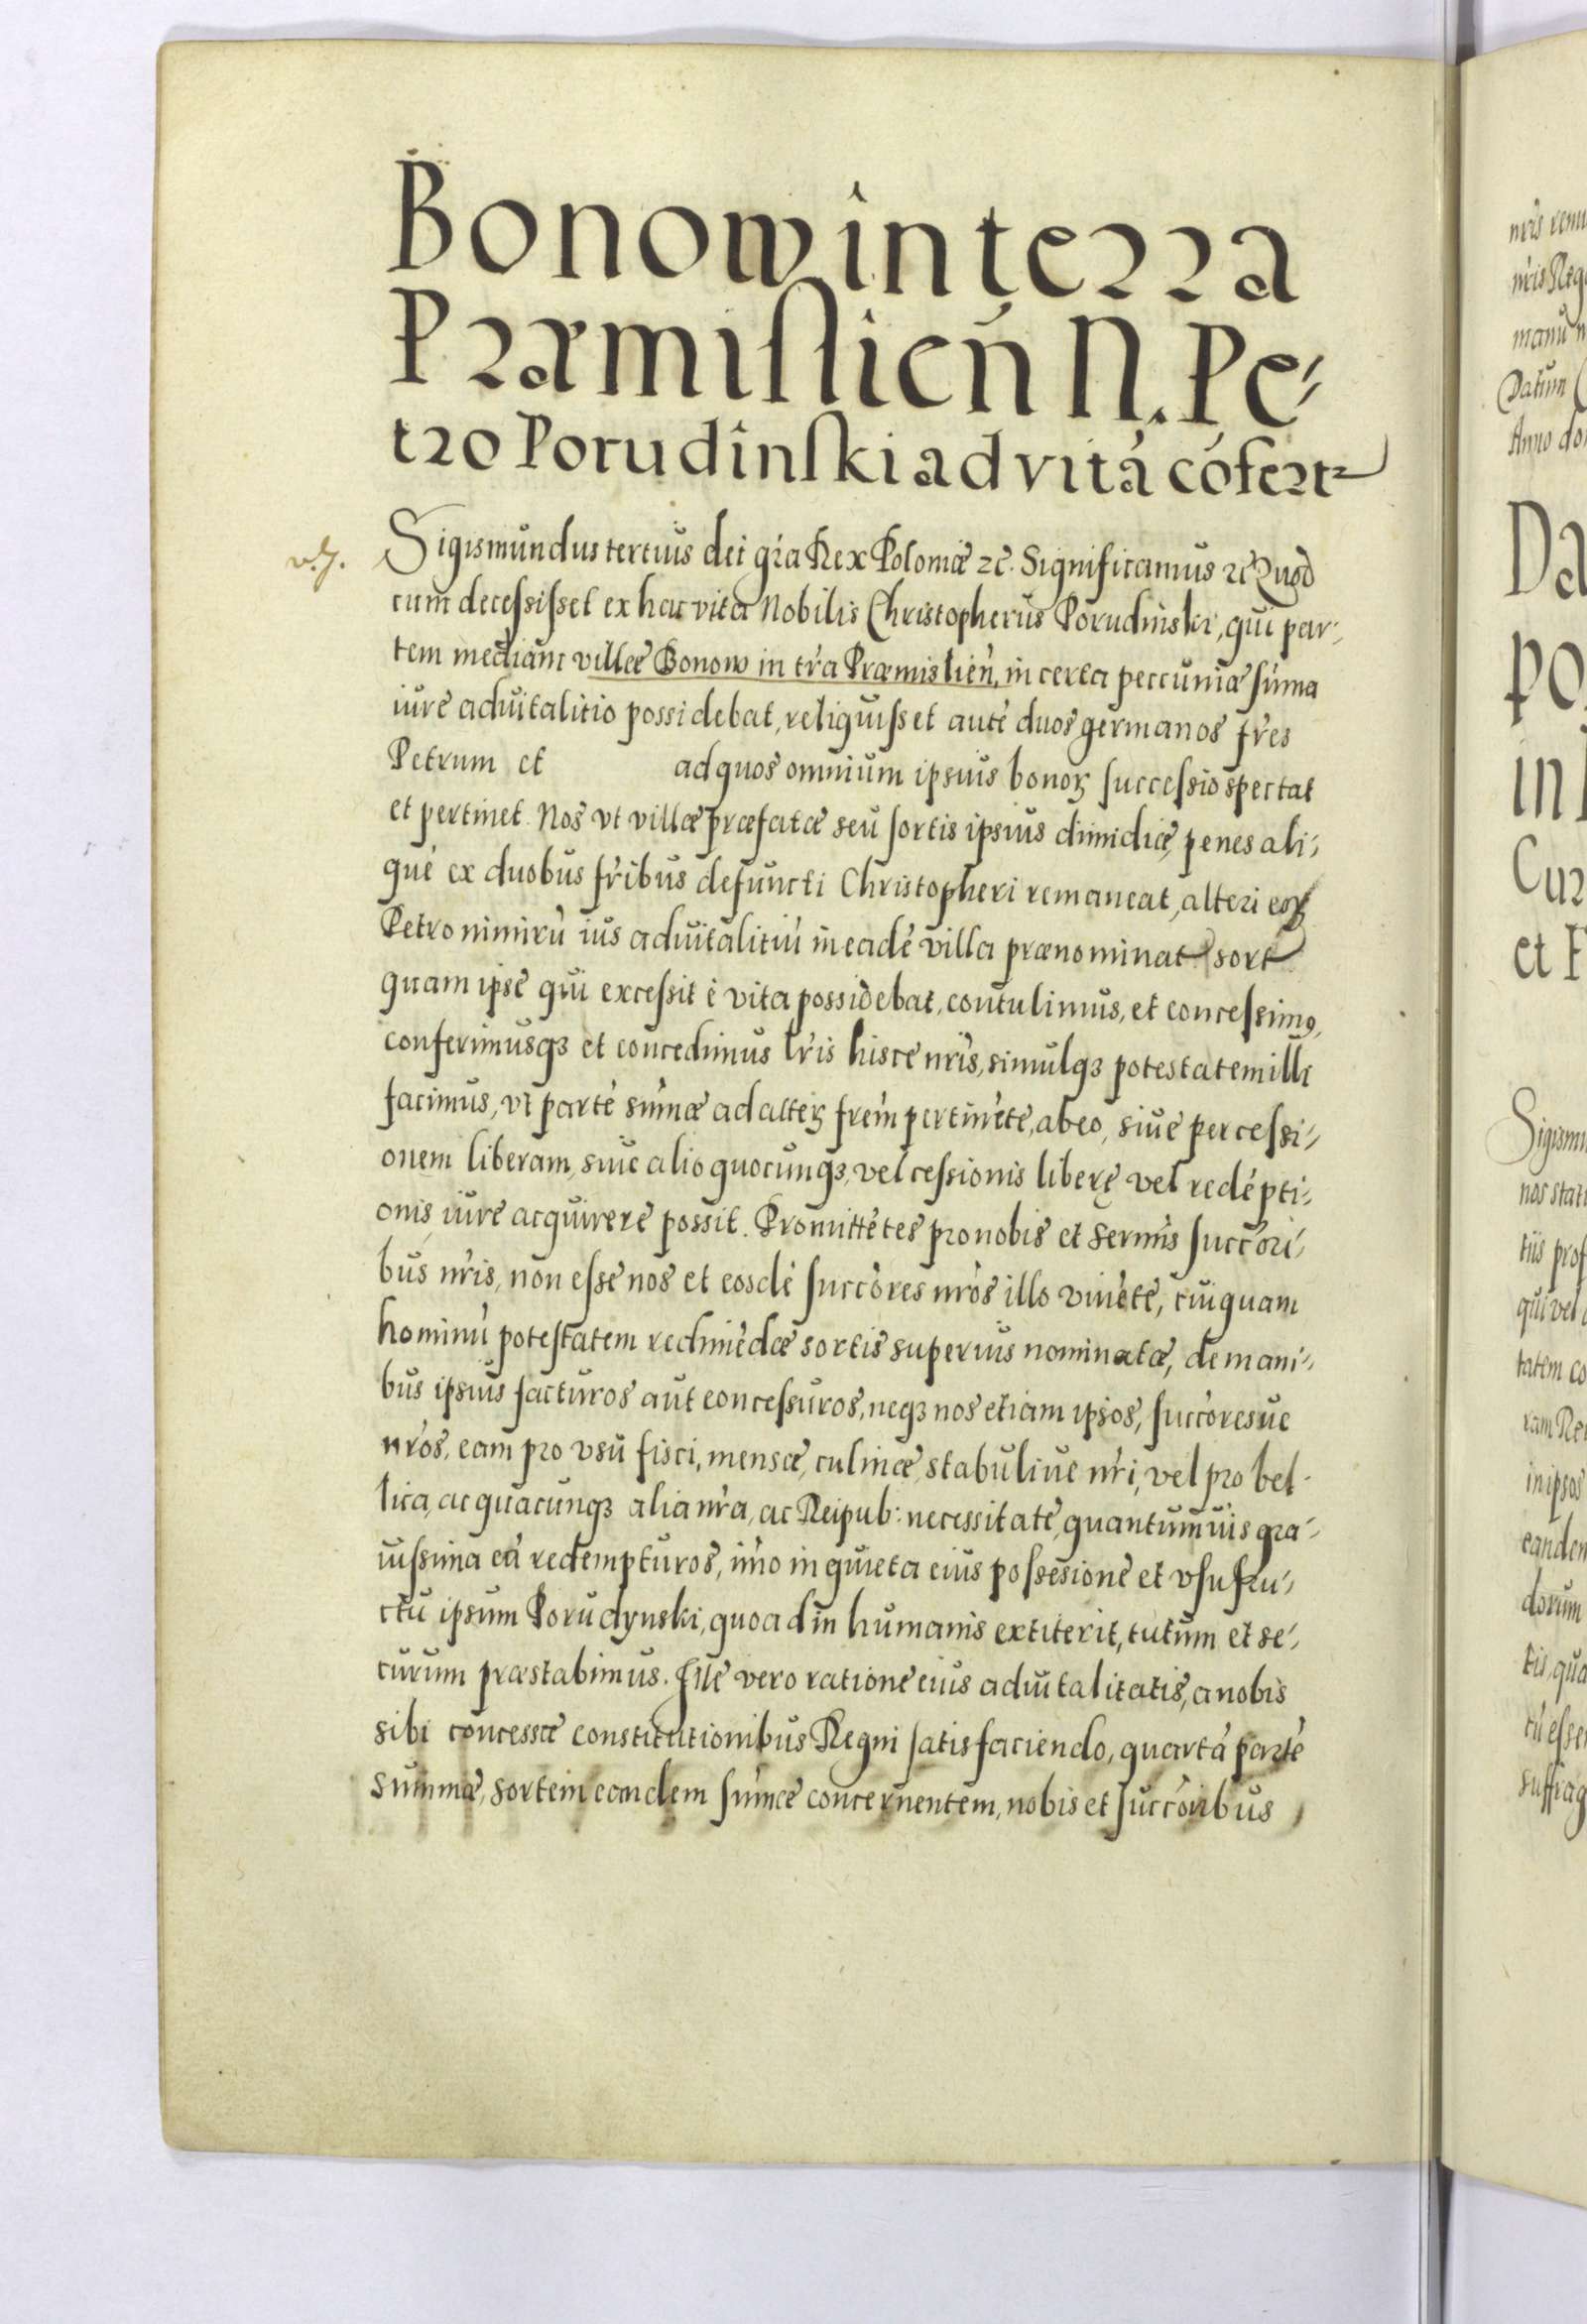 Bonow in terra
Præmisliēn N. Pe-
tro Porudinski ad vitā cōfert
Sigismundus tertius dei gr̄a Rex Poloniæ ꝛc. Significamus ꝛc Quod
cum decessisset ex hac vita Nobilis Christopherus Porudinski, qui par-
tem mediam villæ Bonow in tr̄a Præmisliēn, in certa peccuniæ sūma
iure aduitalitio possidebat, reliquisset autē duos germanos fr̄es
Petrum et ad quos omnium ipsius bonoꝝ successio spectat
et pertinet. Nos vt villæ præfatæ seu sortis ipsius dimidiæ, penes ali-
quē ex duobus fr̄ibus defuncti Christopheri remaneat, alteri eoꝝ
Petro nimirū ius aduitalitiū in eadē villa prænominat sort
quam ipse qui excessit è vita possidebat, contulimus, et concessimꝰ,
conferimusqꝫ et concedimus lr̄is hisce nr̄is, simulqꝫ potestatem illi
facimus, vt partē sūmæ ad alteꝝ frēm pertinētē, ab eo, siue per cessi-
onem liberam, siue alio quocunqꝫ, vel cessionis liberę vel redēpti-
onis iure acquirere possit. Promittētes pro nobis et sermīs succōri-
bus nr̄is, non esse nos et eosdē succōres nr̄os illo viuētē, cuiquam
hominū potestatem redimēdæ sortis superius nominatæ, de mani-
bus ipsius facturos aut concessuros, neqꝫ nos etiam ipsos, succōresue
nr̄os, eam pro vsu fisci, mensæ, culinæ, stabuliue nr̄i, vel pro bel-
lica, ac quacunqꝫ alia nr̄a, ac Reipub: necessitatē, quantumuis gra-
uissima eā redempturos, im̄o in quieta eius possesione et vsufru-
ctu ipsum Porudynski, quoad in humanis extiterit, tutum et se-
curum præstabimus. Ille vero ratione eius aduitalitatis, a nobis
sibi concessæ constitutionibus Regni satisfaciendo, quartā partē
summæ, sortem eandem sūmæ concernentem, nobis et succōribus